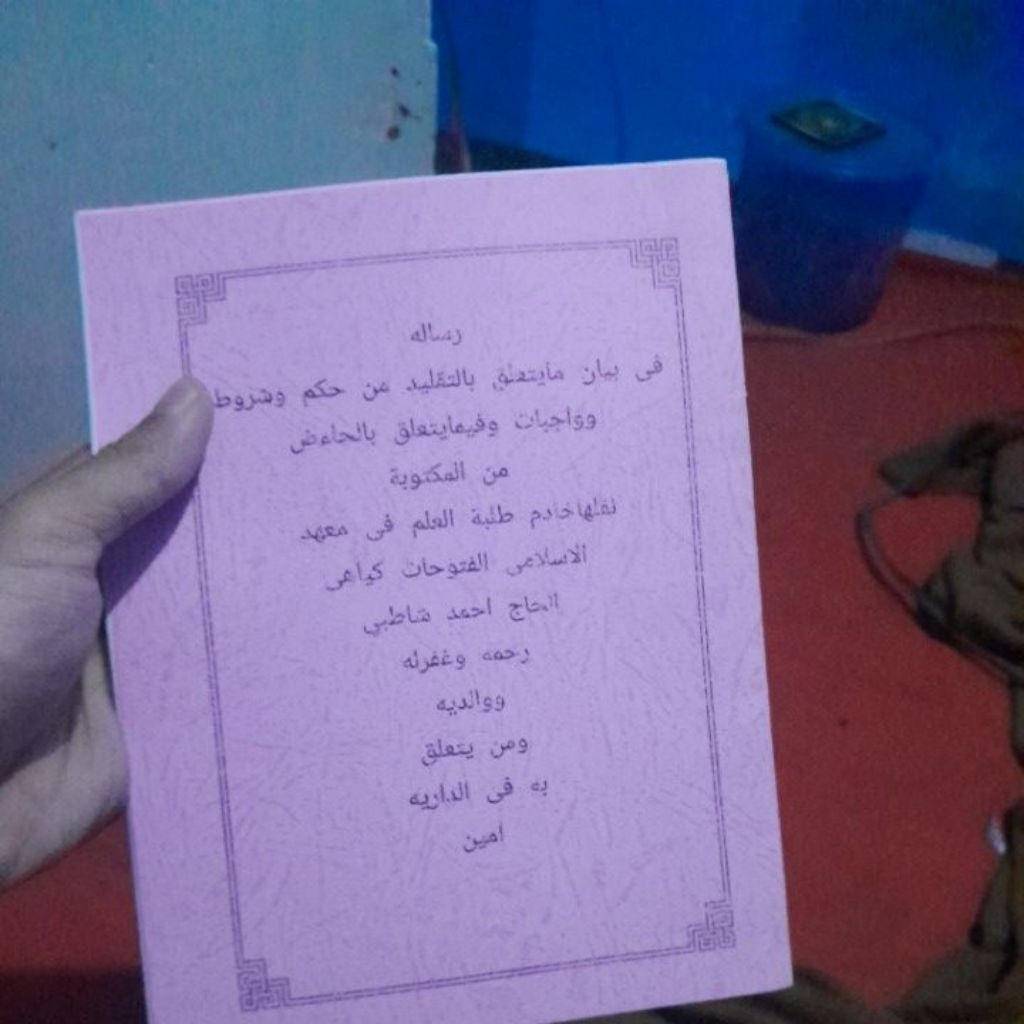 رساله
فى بيان مايتعلق بالتقليد من حكم وشروط
وواجبات وفيمايتعلق بالحاءض
من المكتوبة
نقلهاخادم طلبة العلم فى معهد
الاسلامى الفتوحات كياهى
الحاج احمد شاطبي
رحمه وغفرله
ووالديه
ومن يتعلق
به فى الداريه
امين